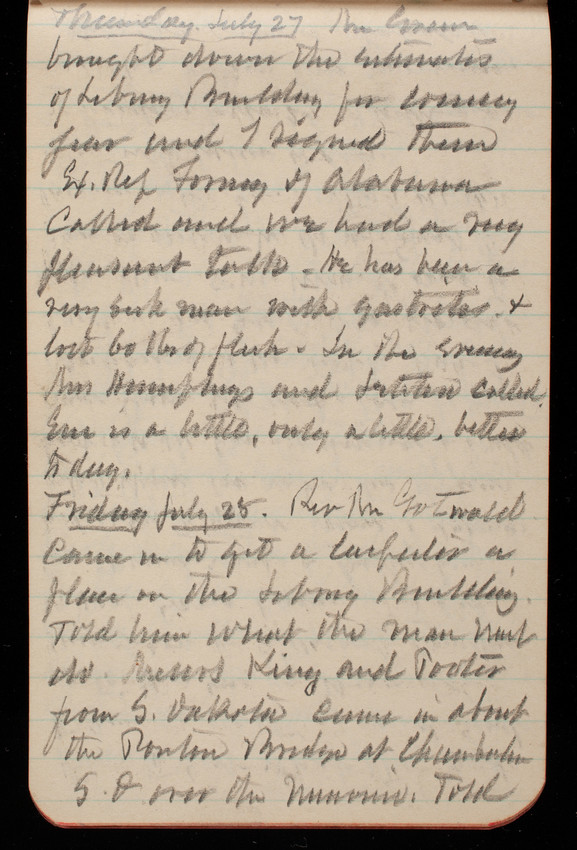 Thursday. July 27 Mr Green
brought down the estimates
of Library Building for coming
year and I signed them
Ex. Rep Forney of Alabama
Called and we had a very
pleasant talk - He has been a
very sick man with gastritis. &
lost 60 lbs of flesh - In the evening
Mrs Humphreys and sister called.
Em is a little, only a little, better
today.
Friday July 28. Rev Mr Gotwald
Came in to get a a
place on the Library Building.
Told him what the man must
do. Messrs King and Tooter
from S. Dakota came in about
the Ponton Bridge at Chamberlain
S. D over the Missouri. Told